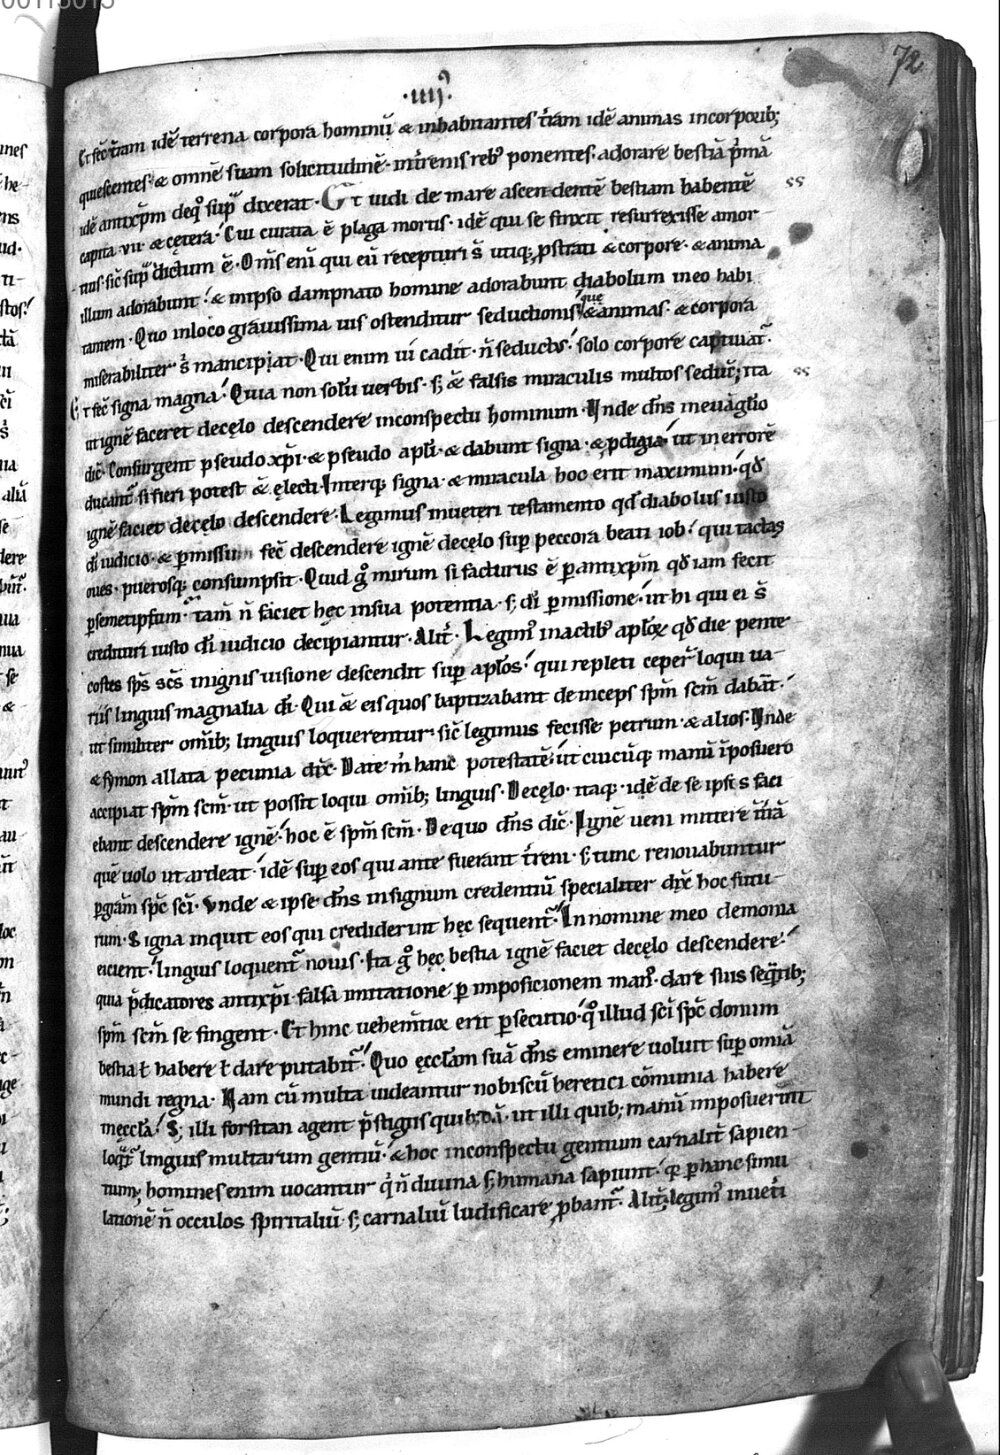 00115015
72
·iiij·
Et fec̄ t̄ram idē terrena corpora hominū & inhabitantes t̄ram idē animas incorporib;
quiescentes· & omnē suam solicitudinē· int̄renis reb; ponentes· adorare bestiā p̄mā
idē antixp̄m deq̊ sup̄ dixerat· Et uidi de mare ascendentē bestiam habentē
capita ·vii· & cętera· Cui curata ē plaga mortis· idē qui se finxit resurrexisse amor-
tuis· sic̄ sup̄ dictum ē· Om̄s eni qui eū recepturi s̄ utiq; pstrati & corpore· & anima
illum adorabunt· & inipso dampnato homine adorabunt diabolum in eo habi
tantem· Quo inloco grauissima uis ostenditur seductionis· que & animas· & corpora
miserabiliter s̄ mancipiat· Qui enim ui cadit· n̄ seductus· solo corpore captiuat̄·
Et fec̄ signa magna· Quia non solū uerbis· s; & falsis miraculis multos seduc̄; ita
ut ignē faceret decęlo descendere inconspectu hominum· Unde dn̄s ineuāglio
dic̄· Consurgent pseudo xp̄i· & pseudo apl̄i· & dabunt signa· & pdigia· ut in errorē
ducant̄ si fieri potest & ęlecti· Interq; signa & miracula hoc erit maximum· qd̄
ignē faciet decęlo descendere· Legimus inueteri testamento qd̄ diabolus iusto
dī iudicio· & pmissum fec̄ descendere ignē decęlo sup peccora beati iob· qui tactas
oues· puerosq; consumpsit· Quid g̊ mirum si facturus ē p antixp̄m qd̄ iam fecit
p semetipsum· tam̄ n̄ faciet hęc insua potentia· s; dī pmissione· ut hi qui ei s̄
credituri iusto dī iudicio decipiantur· Alit̄· Legim̉ inactib; aplōꝝ qd̄ die pente
costes sp̄s sc̄s inignis uisione descendit sup apl̄os· qui repleti ceper̄ loqui ua-
riis linguis magnalia dī· Qui & eis quos baptizabant deinceps sp̄m sc̄m dabāt·
ut similiter om̄ib; linguis loquerentur· sic̄ legimus fecisse petrum & alios· Unde
& symon allata pecunia dix̄· Date m̄ hanc potestatē· ut cuicūq; manū īposuero
accipiat sp̄m sc̄m· ut possit loqui om̄ib; linguis· Decęlo· itaq; idē de se ipsis faci
ebant descendere ignē· hoc ē sp̄m sc̄m· De quo dn̄s dic̄· Ignē ueni mittere
quē uolo ut ardeat· idē sup eos qui ante fuerant t̄reni· s; tunc renouabuntur
p grām sp̄c sc̄i· Unde & ipse dn̄s insignum credentiū specialiter dix̄ hoc futu-
rum· Signa inquit eos qui crediderint hęc sequent̄· In nomine meo demonia
eicient· linguis loquent̄ nouis· Ita g̊ hęc bestia ignē faciet decęlo descendere·
quia p̄dicatores antixp̄i falsa imitatione p imposicionem man̉· dare suis seq̄tib;
sp̄m sc̄m se fingent· Et hinc uehem̄tior erit psecutio· q̊ illud sc̄i sp̄c donum
bestia ł habere ł dare putabit̄· Quo ęcclam suā dn̄s eminere uoluit sup omīa
mundi regna· Nam cū multa uideantur nobiscū heretici cōmunia habere
inęccl̄a· S; illi forsitan agent p̄stigiis quib;dā· ut illi quib; manū imposuerint
loq̄t̄ linguis multarum gentiū· & hoc inconspectu gentium carnalit̄ sapien-
tium; homines enim uocantur q̄ n̄ diuina s; humana sapiunt· q; p hanc simu
lationē n̄ occulos spiritaliū s; carnaliū ludificare pbant̄· Alit̄; legim̉ inuet̄i